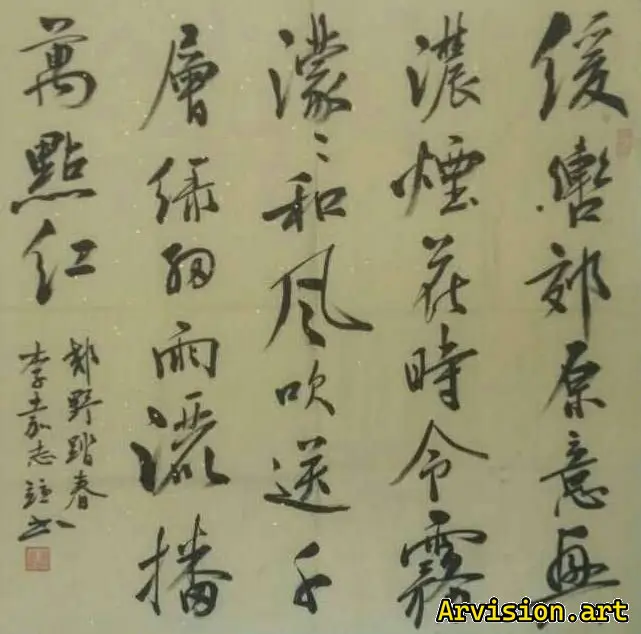 緩轡郊原意興
濃煙花時令霧
濛〻和風吹送千
層綠細雨灑播
萬點紅
郊野踏春
李嘉志
Arvision.art